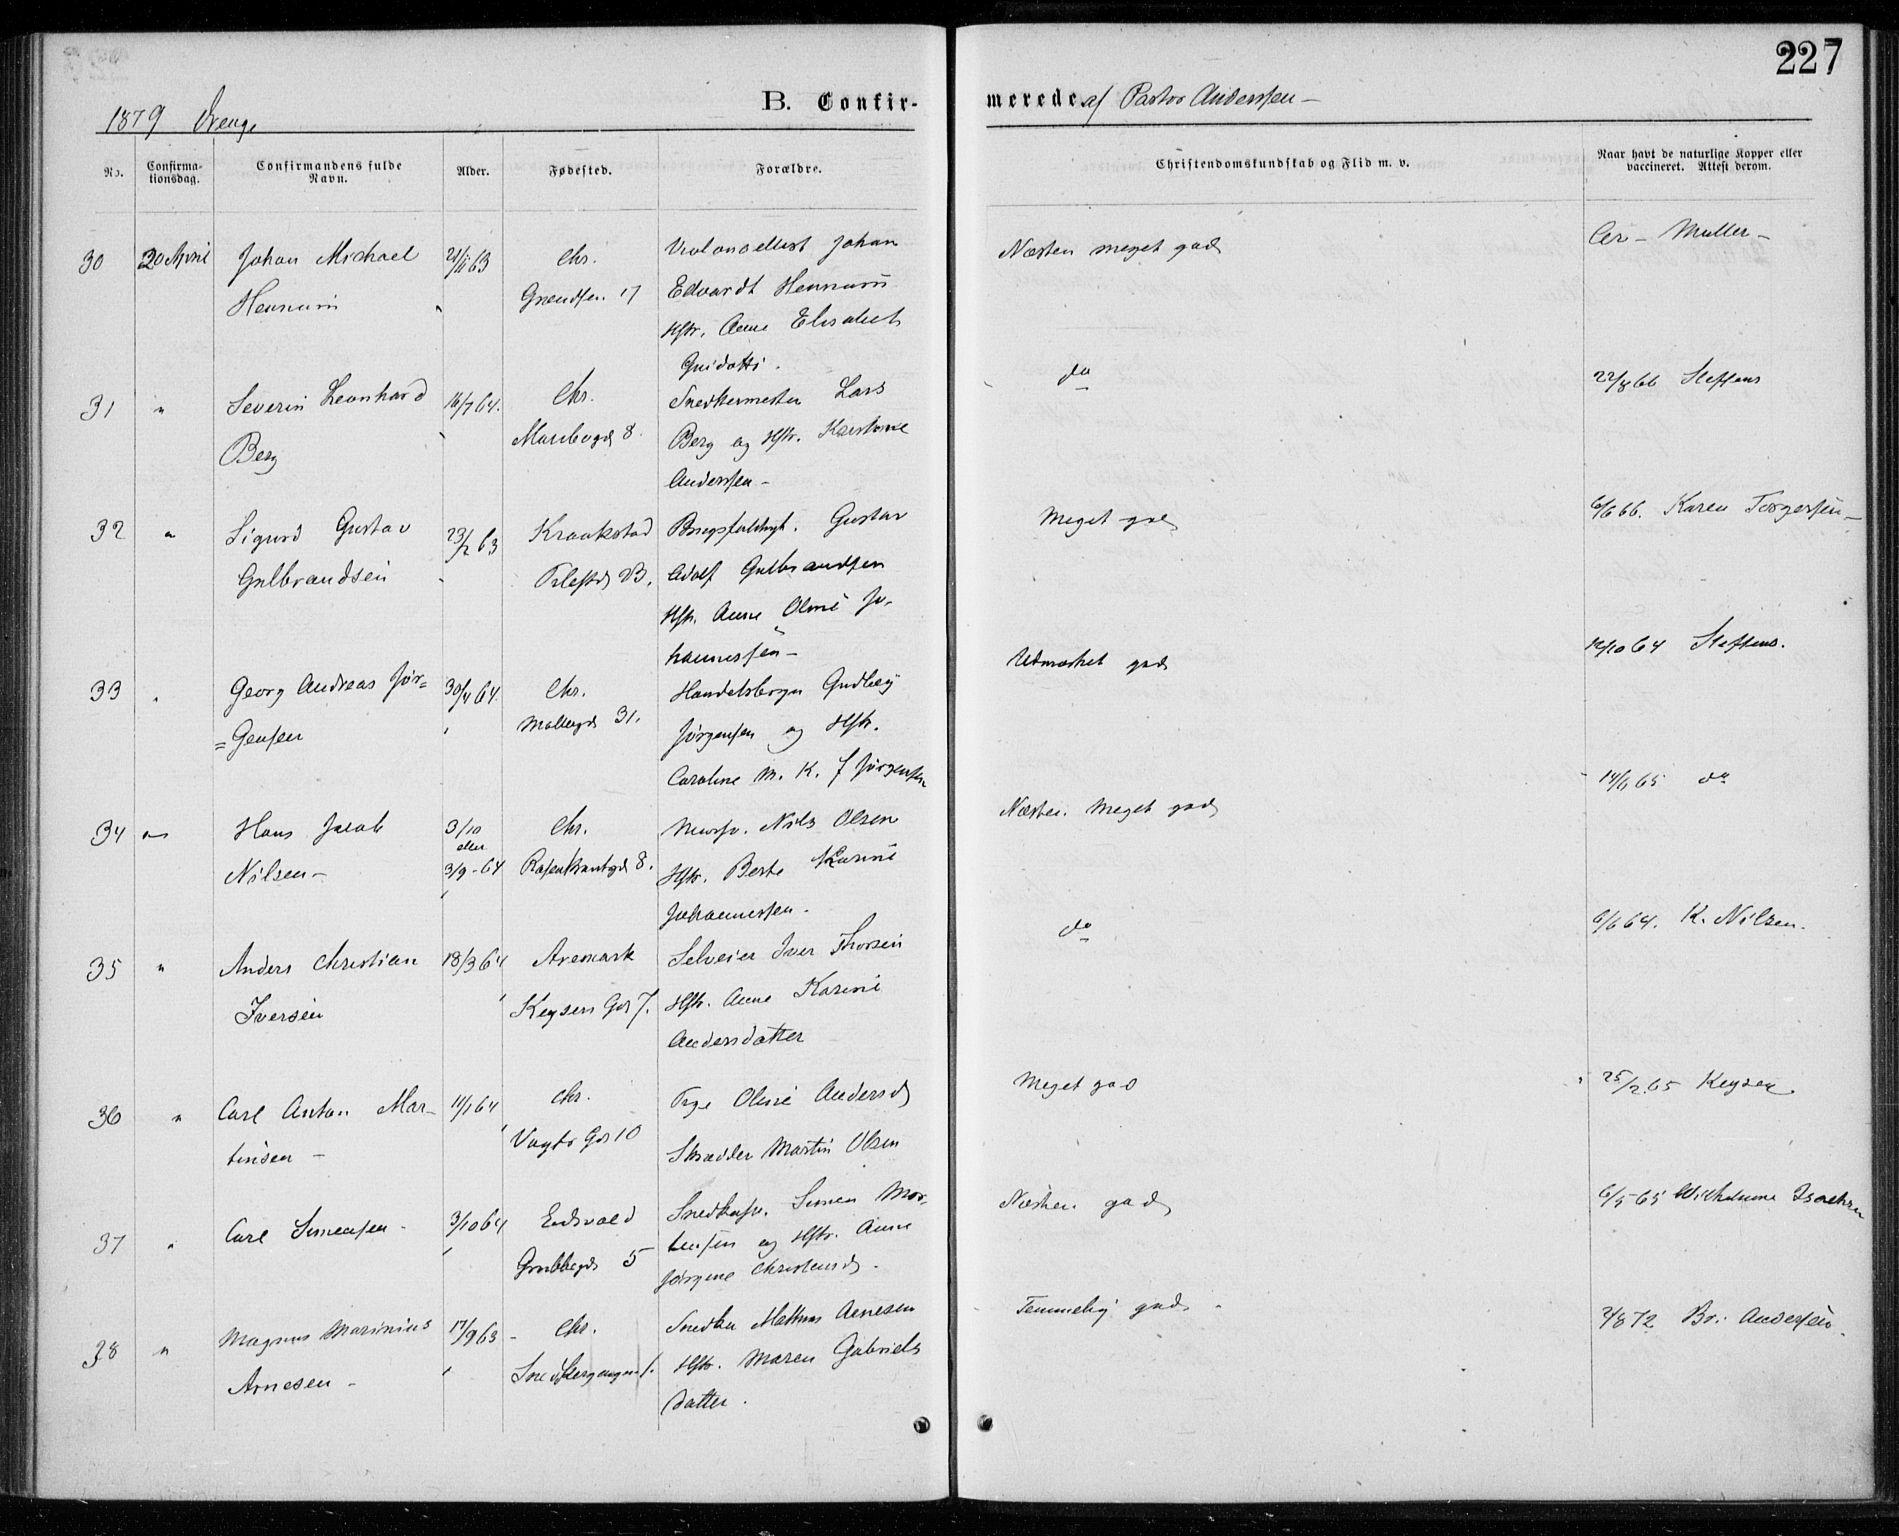 227
1879 Drenge
B. Confirmerede af Pastor Anderssen –
No. Confirmationsdag. Confirmandens fulde Navn. Alder. Fødested. Forældre. Christendomskundskab og Flid m. v. Naar havt de naturlige Kopper eller vaccineret. Attest derom.
30 20 April Johan Michael 21/11 63 Chr. Violoncellist Johan Næsten meget god Müller –
Hennum Grændsen 17 Edvardt Hennum
Hstr. Anne Elisabet
Guidotti.
31 " Severin Leonhard 16/7 64. Chr. Snedkermester Lars do 22/8 66 Steffens
Berg Maribogd 8. Berg og Hstr. Karstine
Anderssen –
32 " Sigurd Gustav 23/2 63 Kraakstad Gustav Meget god 6/6 66. Karen Torgersen –
Gulbrandsen 23. Adolf Gulbrandsen
Hstr. Anne Oline Jo-
hannessen –
33 " Georg Andreas Jør= 30/4 64 Chr. Handelsborger Gudberg Udmærket god 12/10 64 Steffens.
=Gensen Møllergd 31. Jørgensen og Hstr.
Caroline M. K. f Jørgensen
34 " Hans Jacob 3/10 Chr. Mursv. Nils Olsen Næsten Meget god 14/6 65 do
eller
Nilsen – 3/9 - 64 Rosenkrantzgd 8. Hstr. Berte Karine
Johannessen.
35 " Anders Christian 18/3 64 Aremark Selveier Iver Thorsen do 6/6 64. K. Nilsen.
Iversen Keysers Gd 7. Hstr. Anne Karine
Andersdatter
36 " Carl Anton Mar- 11/1 64 Chr. Pige Oline Andersd Meget god 25/2 65 Keyser
tinsen – Vogts Gd 10 Skrædder Martin Olsen
37 " Carl Simensen – 3/10 64 Eidsvold Snedkersv. Simen Mor- Næsten god 6/5 65 Wilhelmine Isachsen
Grubbegd 5 tensen og Hstr. Anne
Jørgine Christensd.
38 " Magnus Marinius 17/9 63 – Chr. Snedker Mathias Arnesen Temmelig god. 2/8 72 Br. Andersen.
Arnesen – Hstr. Maren Gabriels
datter.